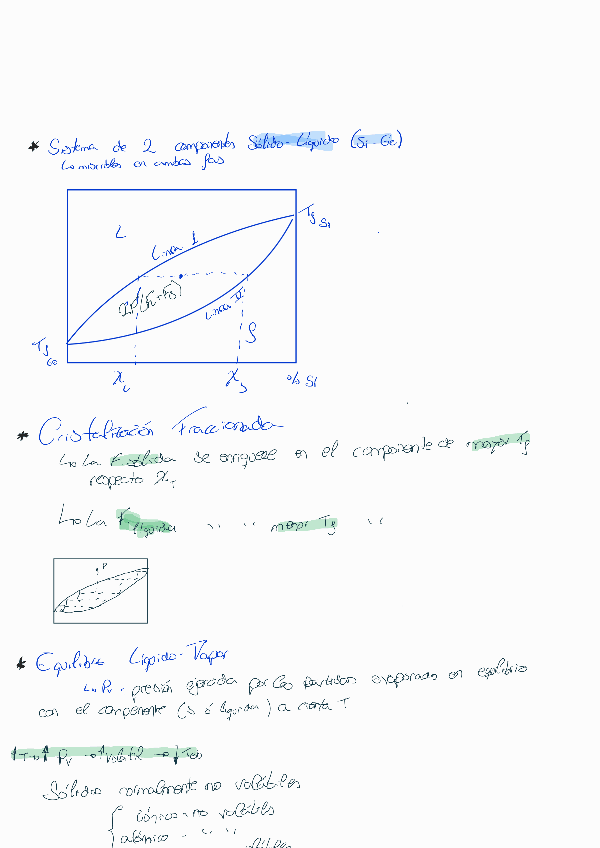 * Sistema de 2 componentes Sólido-Líquido (Si-Ge)
↳ miscibles en ambas fases
Tf Si
L
Línea I
Línea II
S
Tf Ge
X L
X S
% Si
* Cristalización Fraccionada
↳ La F. sólida se enriquece en el componente de mayor Tf
respecto XT
↳ La F. líquida " " menor Tf "
P
* Equilibrio Líquido-Vapor
↳ Pv - presión ejercida por las partículas evaporadas en equilibrio
con el componente (S o líquido) a cierta T
↑T → ↑Pv → ↑volátil → ↓Teb
Sólido normalmente no volátiles
iónico - no volátiles
atómico - " "